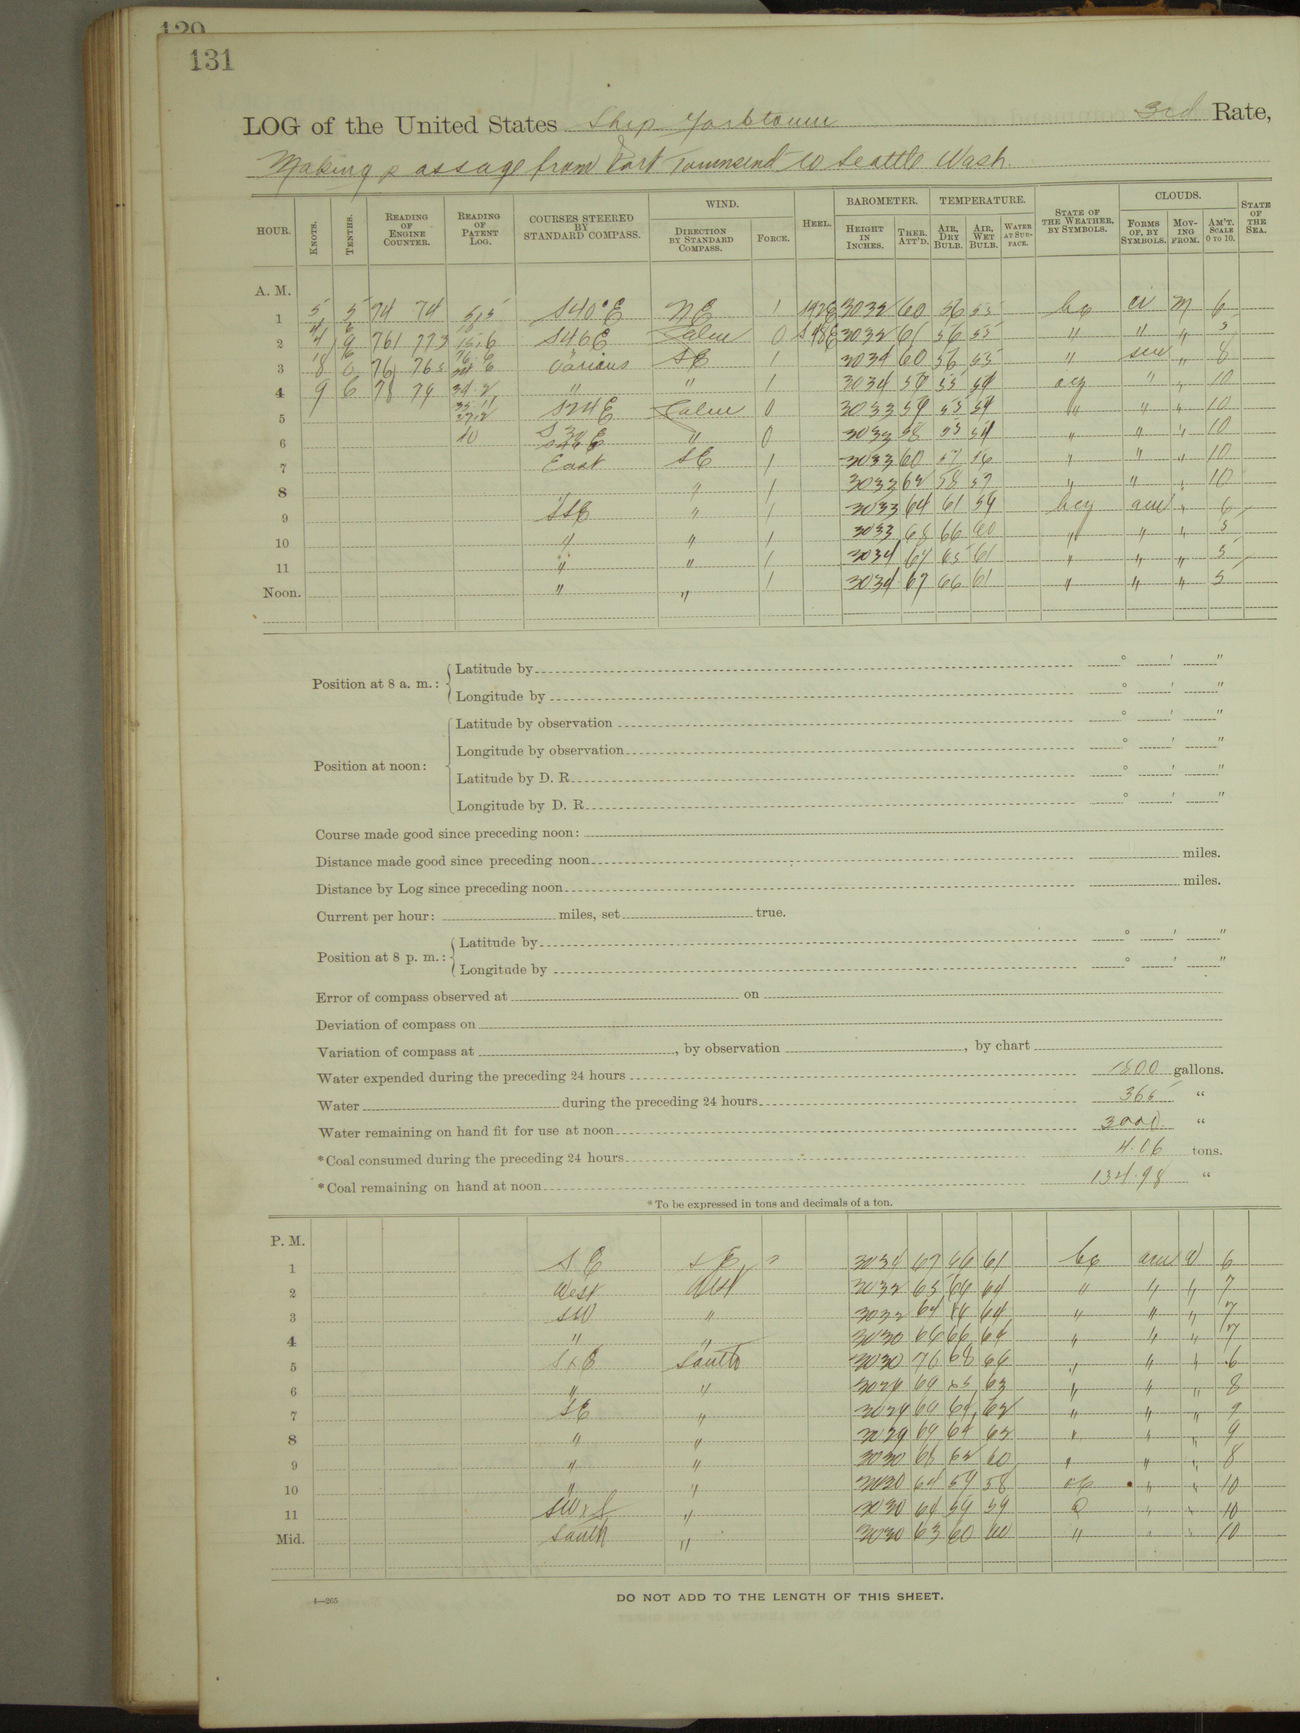 129
131
LOG of the United States Ship Yorktown 3rd Rate,
Making passage from Port Townsend to Seattle Wash.
HOUR. KNOTS. TENTHS. READING OF ENGINE COUNTER. READING OF PATENT LOG. COURSES STEERED BY STANDARD COMPASS. WIND. DIRECTION BY STANDARD COMPASS. FORCE. HEEL. BAROMETER. HEIGHT IN INCHES. THER. ATT'D. TEMPERATURE. AIR, DRY BULB. AIR, WET BULB. WATER AT SURFACE. STATE OF THE WEATHER, BY SYMBOLS. CLOUDS. FORMS OF, BY SYMBOLS. MOVING FROM. AM'T. SCALE 0 TO 10. STATE OF THE SEA.
A. M.
1 5 5 74 74 S40°E NE 1 3032 60 56 55 6
2 761 773 S46E Calm 0 3032 61 56 55 " " "
3 8 Various SE 1 3034 60 56 55 " " 8
4 9 6 78 79 34.2 " " 1 3034 59 55 54 " " 10
5 S24E Calm 0 3033 59 55 54 " " " 10
6 40 " 0 3033 58 55 54 " " " 10
7 East SE 1 3033 60 57 56 " " " 10
8 " 1 3033 62 58 57 " " " 10
9 SSE " 1 3033 64 61 59 bcy " 6
10 " " 1 3033 68 66 60 " " " 5
11 " " 1 3034 67 65 61 " " " 5
Noon. " " 1 3034 67 66 61 " " " 5
Position at 8 a. m.: Latitude by ° ' "
Longitude by ° ' "
Position at noon: Latitude by observation ° ' "
Longitude by observation ° ' "
Latitude by D. R. ° ' "
Longitude by D. R. ° ' "
Course made good since preceding noon:
Distance made good since preceding noon miles.
Distance by Log since preceding noon miles.
Current per hour: miles, set true.
Position at 8 p. m.: Latitude by ° ' "
Longitude by ° ' "
Error of compass observed at on
Deviation of compass on
Variation of compass at , by observation , by chart
Water expended during the preceding 24 hours 1800 gallons.
Water during the preceding 24 hours 365 "
Water remaining on hand fit for use at noon 3000 "
*Coal consumed during the preceding 24 hours 4.06 tons.
*Coal remaining on hand at noon 134.98 "
*To be expressed in tons and decimals of a ton.
P. M.
1 SE SE 3034 67 66 61 6
2 West West 3032 65 64 " " " 7
3 SW " 3032 64 64 " " " 7
4 " " 3030 66 66 64 " " " 7
5 SxE South 3030 70 68 64 " " " 6
6 " " 3029 69 65 63 " " " 8
7 SE " 3029 69 64 62 " " " 9
8 " " 3029 69 64 62 " " " 9
9 " " 3030 62 60 " " " 8
10 " " 3030 64 59 58 " " 10
11 SWxS " 3030 64 59 59 " " 10
Mid. South " 3030 63 60 60 " " " 10
4—265
DO NOT ADD TO THE LENGTH OF THIS SHEET.